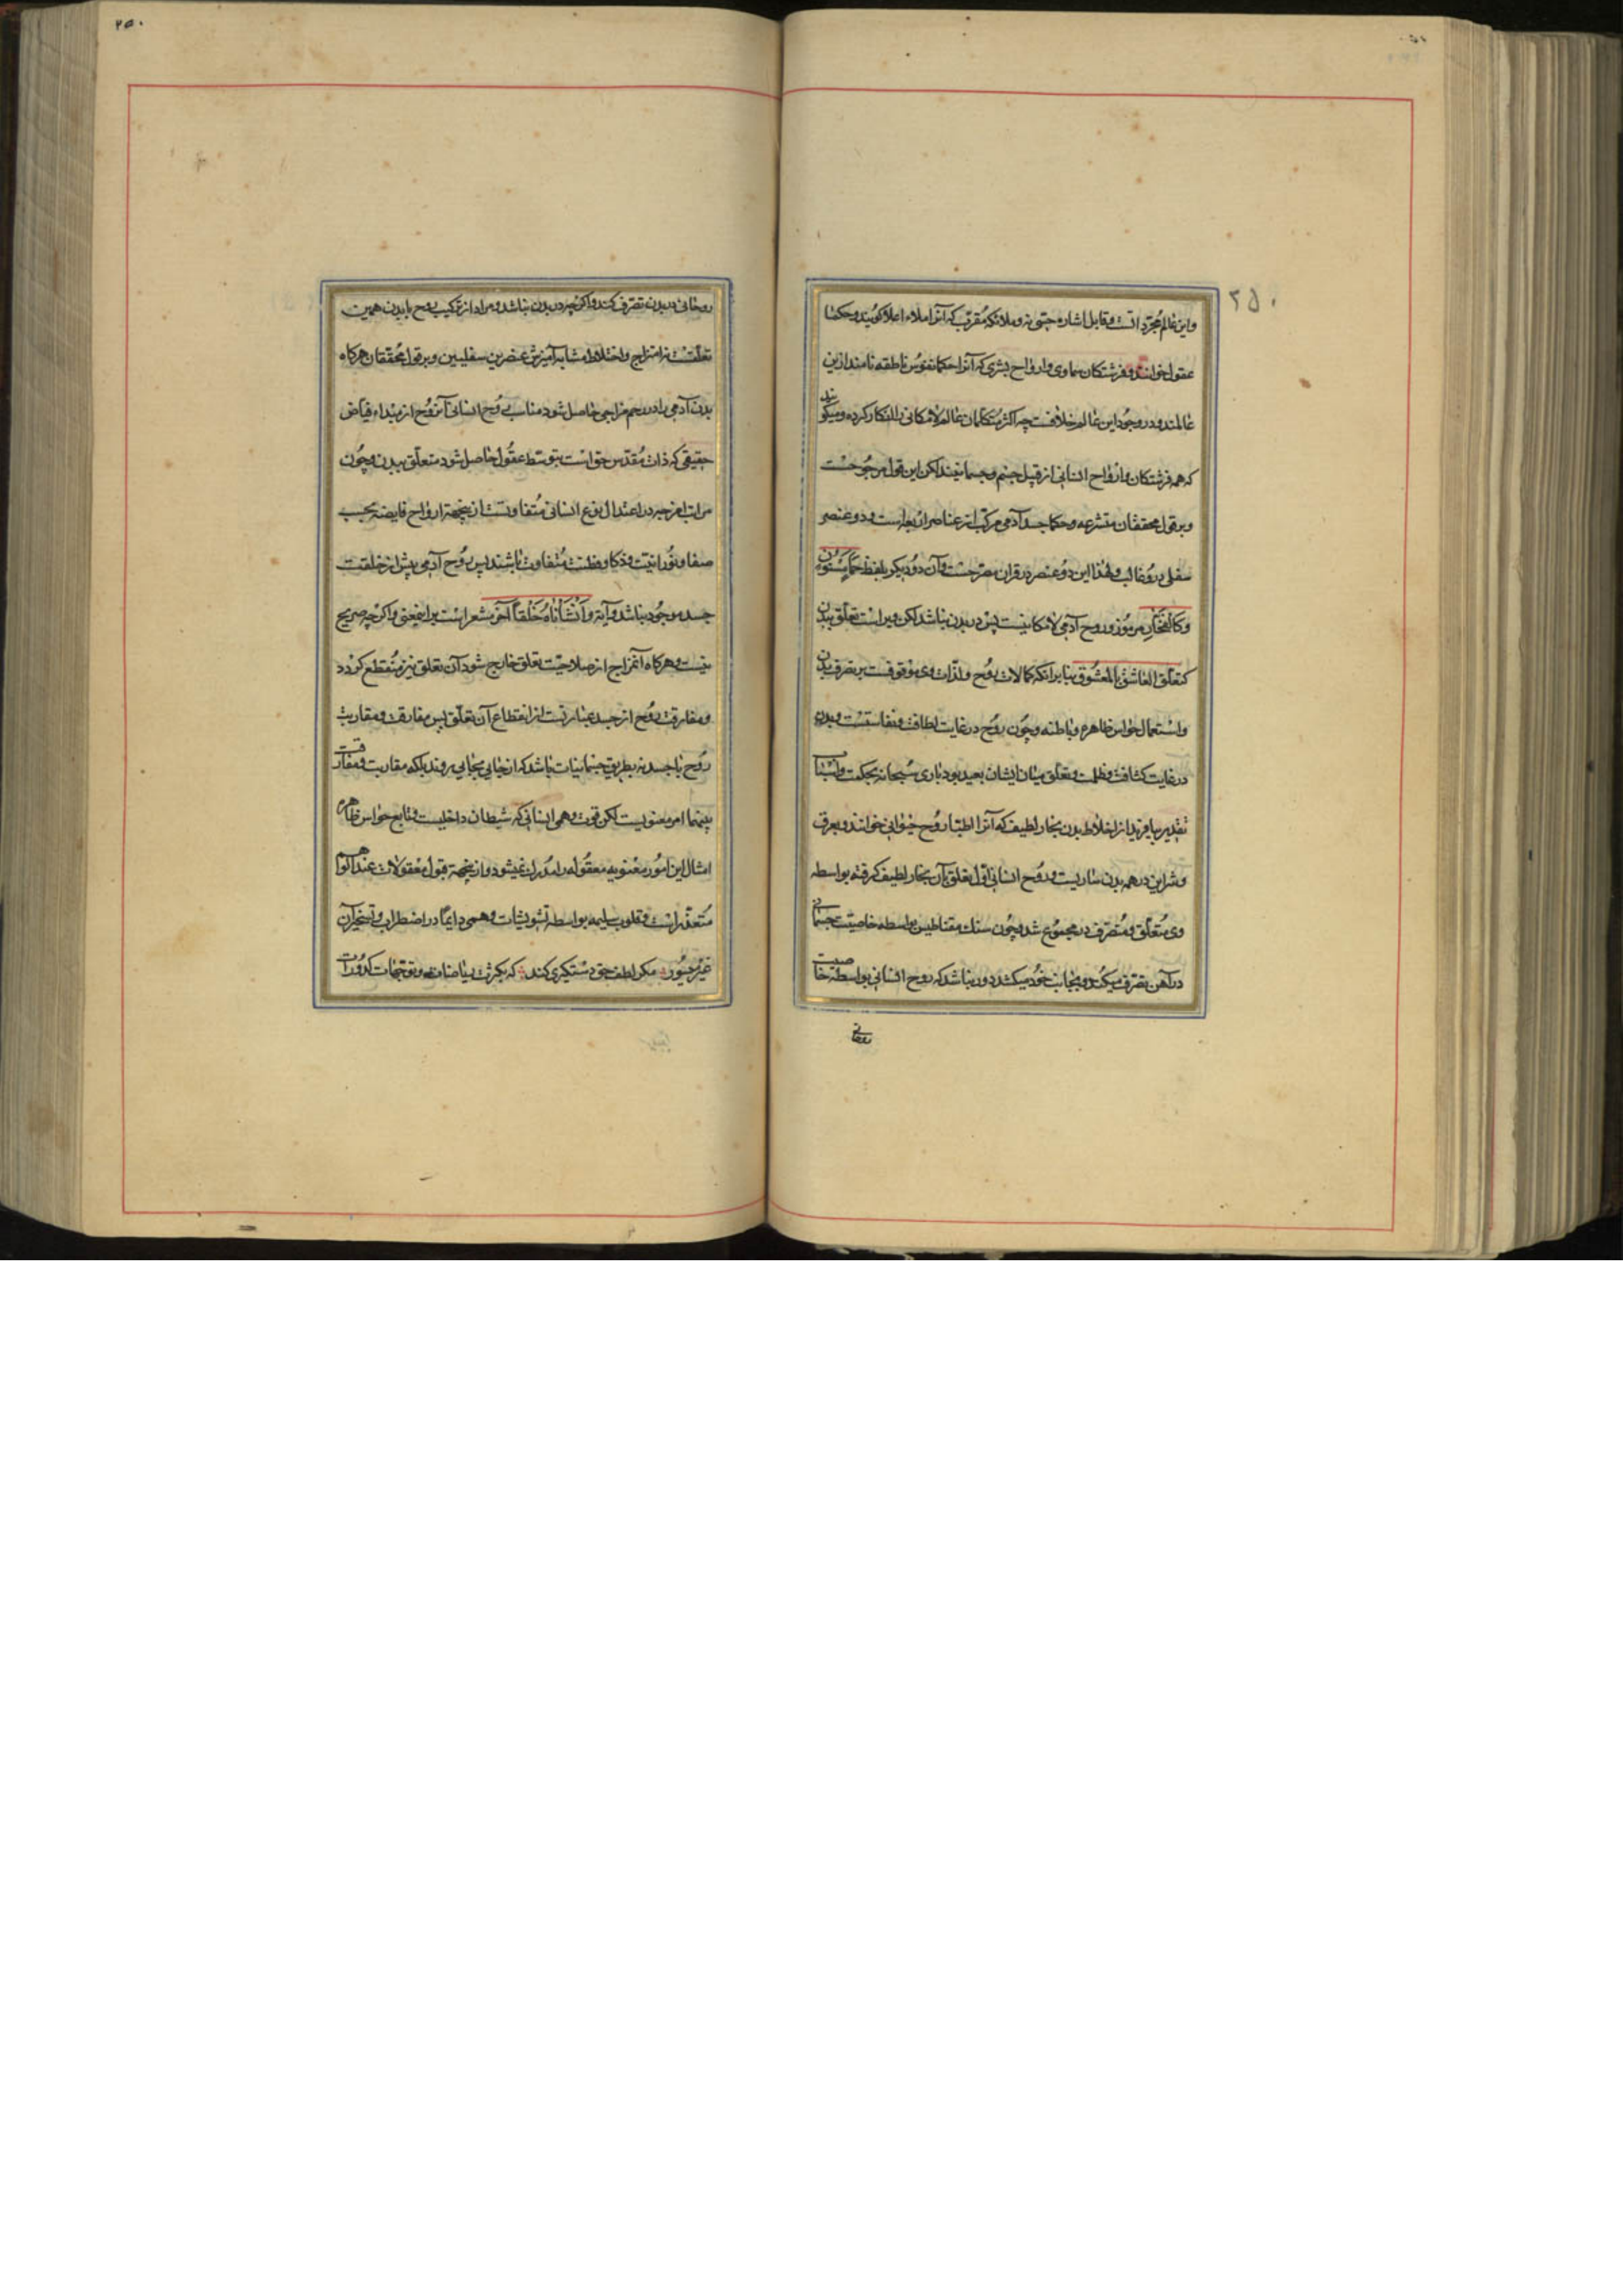 واین عالم مجرد است و قابل اشاره حسی نه و ملائکه مقرب که آنرا ملاء اعلا کویند و حکما
عقول خوانند و فرشتکان سماوی وارواح بشری که آنرا حکما نفوس ناطقه نامند ازین
عالمند و در وجود این عالم خلافست چه اکثر متکلمان عالم لامکانی را انکار کرده و میکویند
که همه فرشتکان وارواح انسانی از قبیل جسم وجسمانیند لکن این قول مرجوحست
وبر قول محققان متشرعه وحکما جسد آدمی مرکب از عناصر اربعه است و دو عنصر
سفلی درو غالب ولهذا این دو عنصر در قران مصرحست وآن دو دیکر بلفظ حمأ مسنون
وکالفخار مرموز و روح آدمی لامکانیست پس در بدن نباشد لکن ویراست تعلق ببدن
کتعلق العاشق بالمعشوق بنا برانکه کمالات روح ولذات وی موقوفست بر تصرف بدن
واستعمال حواس ظاهره وباطنه وچون روح در غایت لطافت ونفاستست و بدن
در غایت کثافت وظلمت وتعلق میان ایشان بعید بود باری سبحانه بحکمت واسباب
تقدیر بیافرید از اخلاط بدن بخار لطیف که آنرا اطبا روح حیوانی خوانند و بعروق
وشراین در همه بدن ساریست و روح انسانی اول تعلق بآن بخار لطیف کرفته بواسطه
وی متعلق ومتصرف در مجموع شد وچون سنک مقناطیس بواسطه خاصیت جسمانی
در آهن تصرف میکند و بجانب خود میکشد دور نباشد که روح انسانی بواسطه خاصیت
روحانی
روحانی در بدن تصرف کند واکرچه در بدن نباشد ومراد از ترکیب روح با بدن همین
تعلقست نه امتزاج واختلاط مشابه آمیزش عنصرین سفلیین وبر قول محققان هرکاه
بدن آدمی را در رحم مزاجی حاصل شود مناسب روح انسانی آن روح از مبداء فیاض
حقیقی که ذات مقدس حق است بتوسط عقول حاصل شود متعلق ببدن وچون
مراتب امزجه در اعتدال نوع انسانی متفاوتست ازینجهة ارواح فایضه بحسب
صفا ونورانیت وذکا وفطنت متفاوت باشند پس روح آدمی پیش از خلقت
جسد موجود نباشد وآیة وانشأناه خلقاً آخر مشعر است براینمعنی واکرچه صریح
نیست وهرکاه آنمزاج از صلاحیت تعلق خارج شود آن تعلق نیز منقطع کردد
ومفارقت روح از جسد عبارتست از انقطاع آن تعلق پس مفارقت ومقاربت
روح با جسد نه بطریق جسمانیات باشد که از جایی بجایی روند بلکه مقاربت ومفارقت
بینهما امر معنویست لکن قوت وهمی انسانی که شیطان داخلیست وتابع حواس ظاهره
امثال این امور معنویه معقوله را مدرک نمیشود وازینجهة قبول معقولات عند الوهم
متعذر است وقلوب سلیمه بواسطه تشویشات وهمی دایما در اضطراب وتسخیر آن
غیر میسور مکر لطف حق دستکیری کند که بکثرت ریاضات وتوجهات کدورات
۲۵۰
۲۵۰